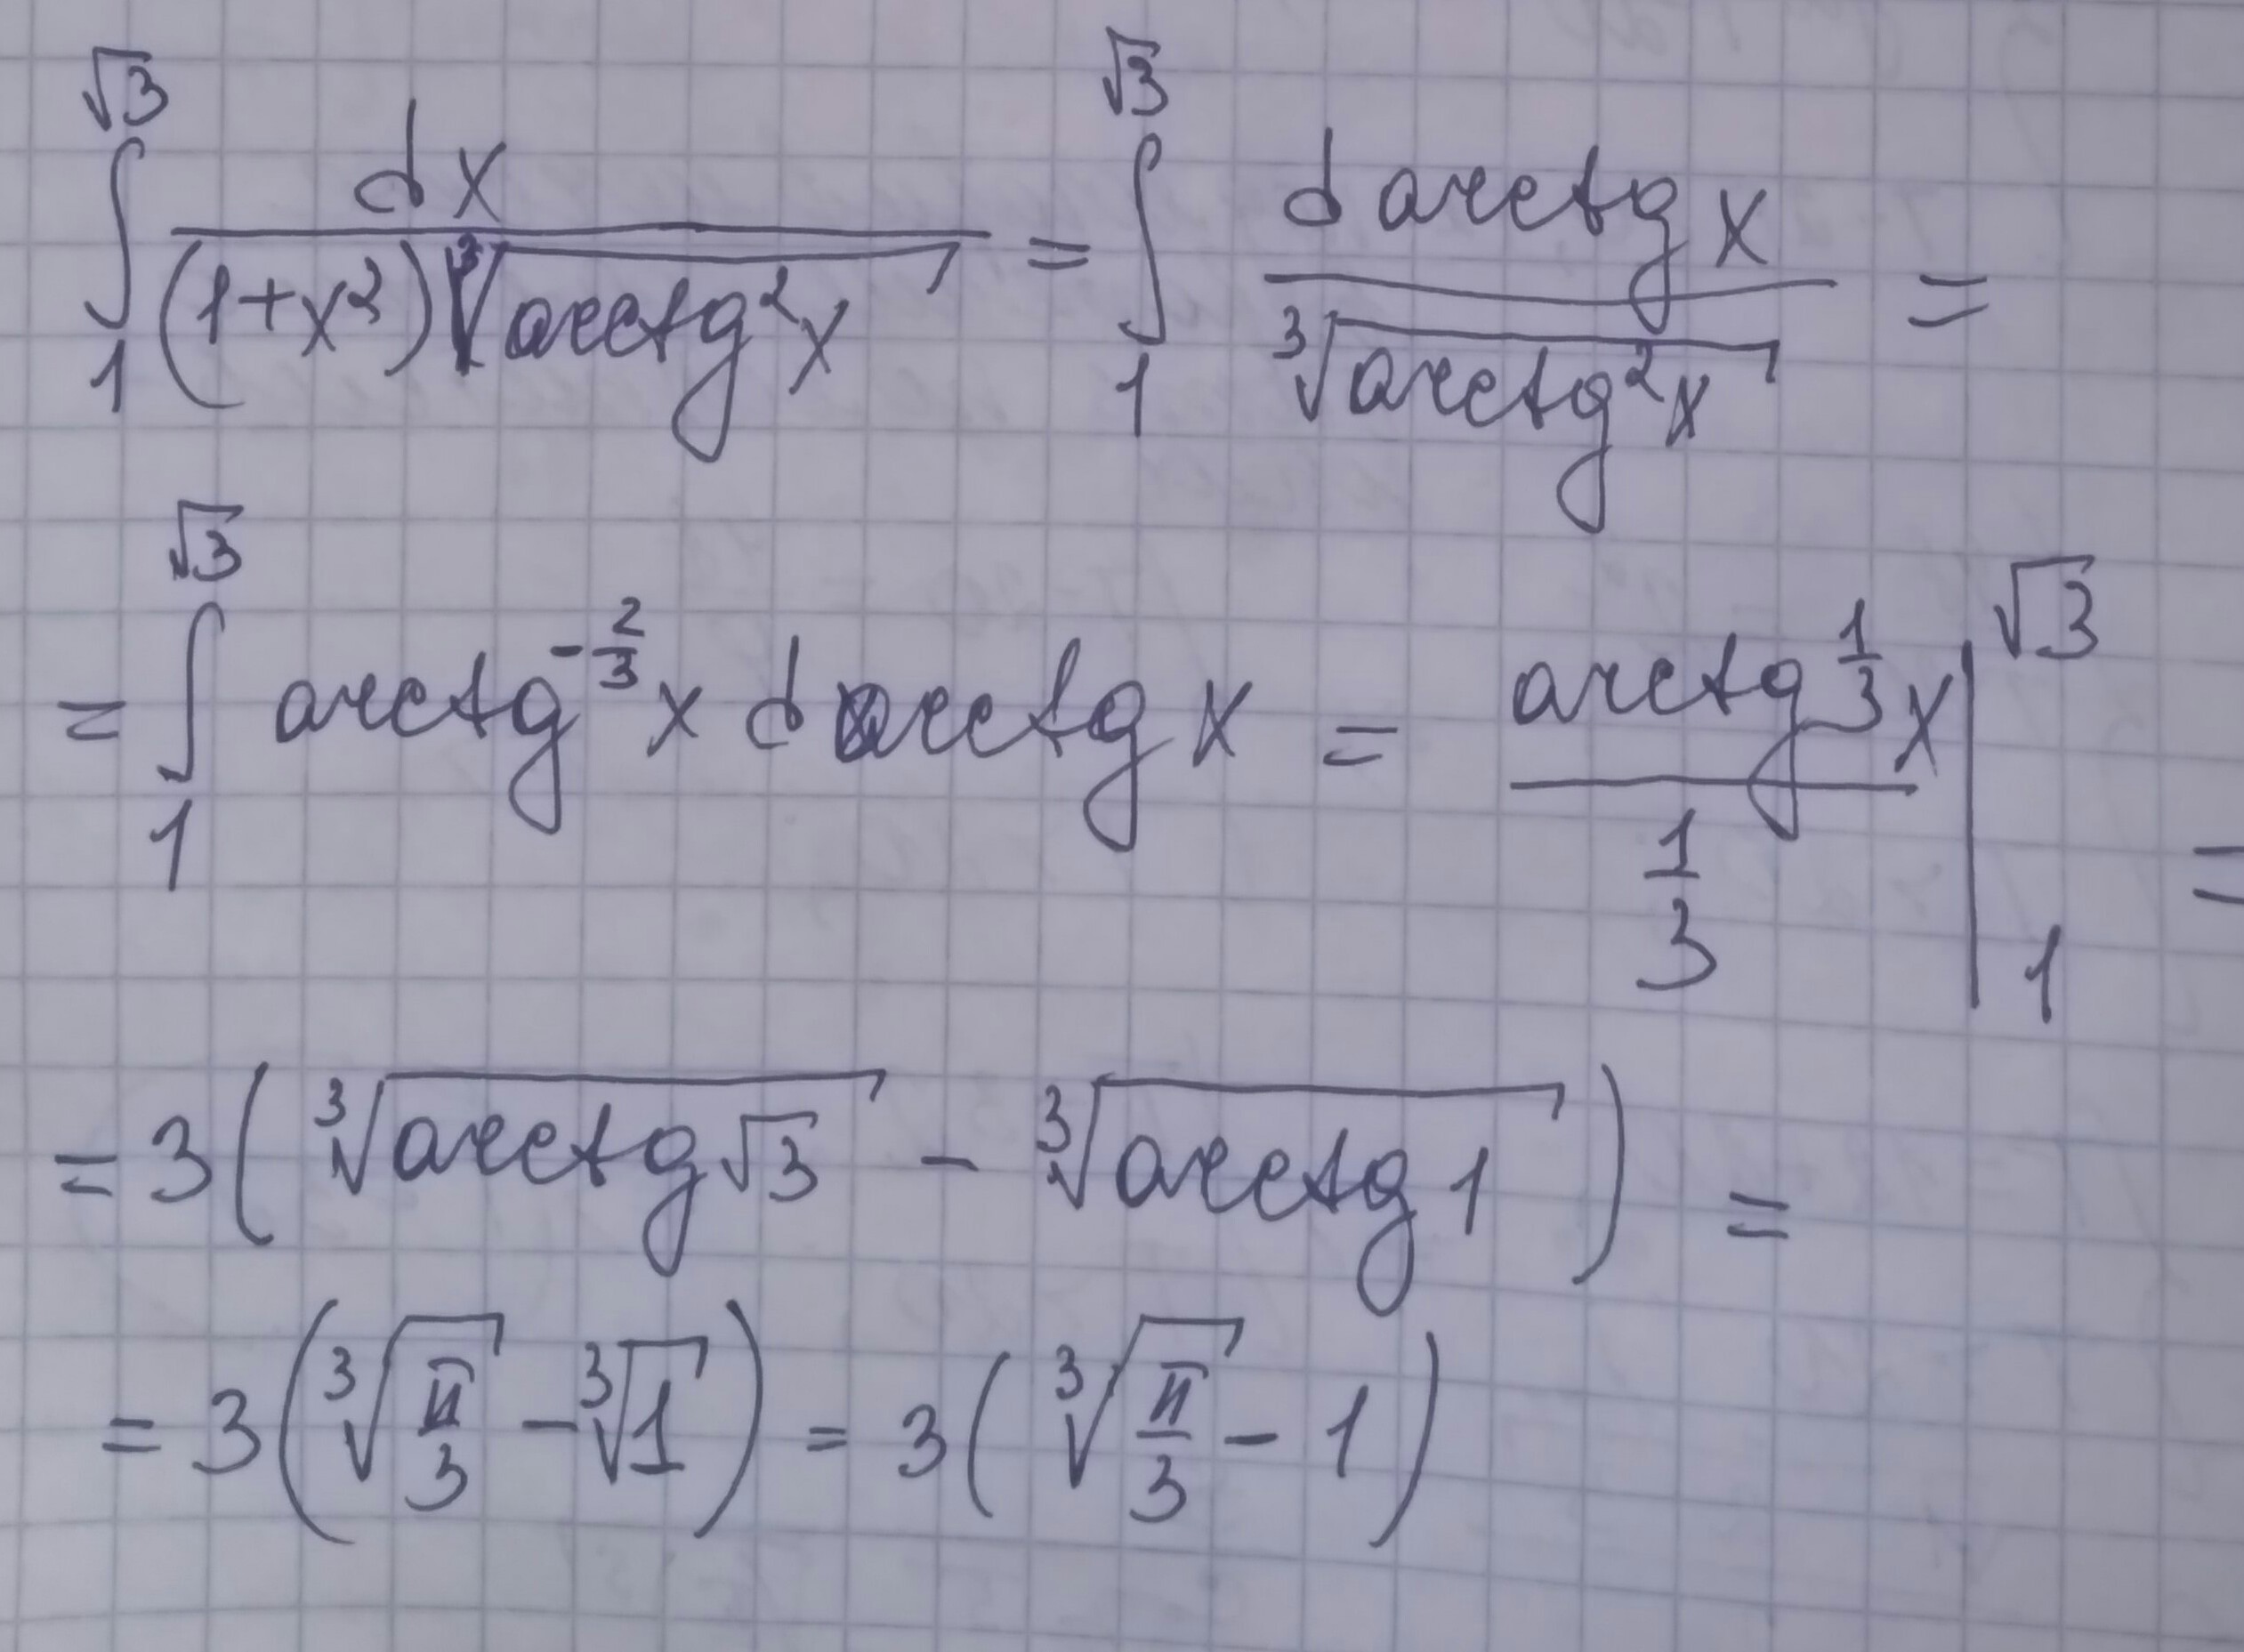 ∫₁^√3 dx / ((1+x²) ∛(arctg²x)) = ∫₁^√3 d arctg x / ∛(arctg²x) =
= ∫₁^√3 arctg^(-2/3) x d arctg x = (arctg^(1/3) x) / (1/3) |₁^√3 =
= 3( ∛(arctg √3) - ∛(arctg 1) ) =
= 3( ∛(π/3) - ∛1 ) = 3( ∛(π/3) - 1 )